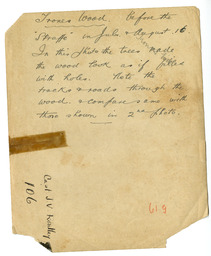 Trones Wood. Before the
"Strafe" in July & August 16
In this photo the trees made
the wood look as if filled
with holes. Note the
tracks & roads through the
wood & compare same with
those shown in 2nd photo.
Capt J V
106
619